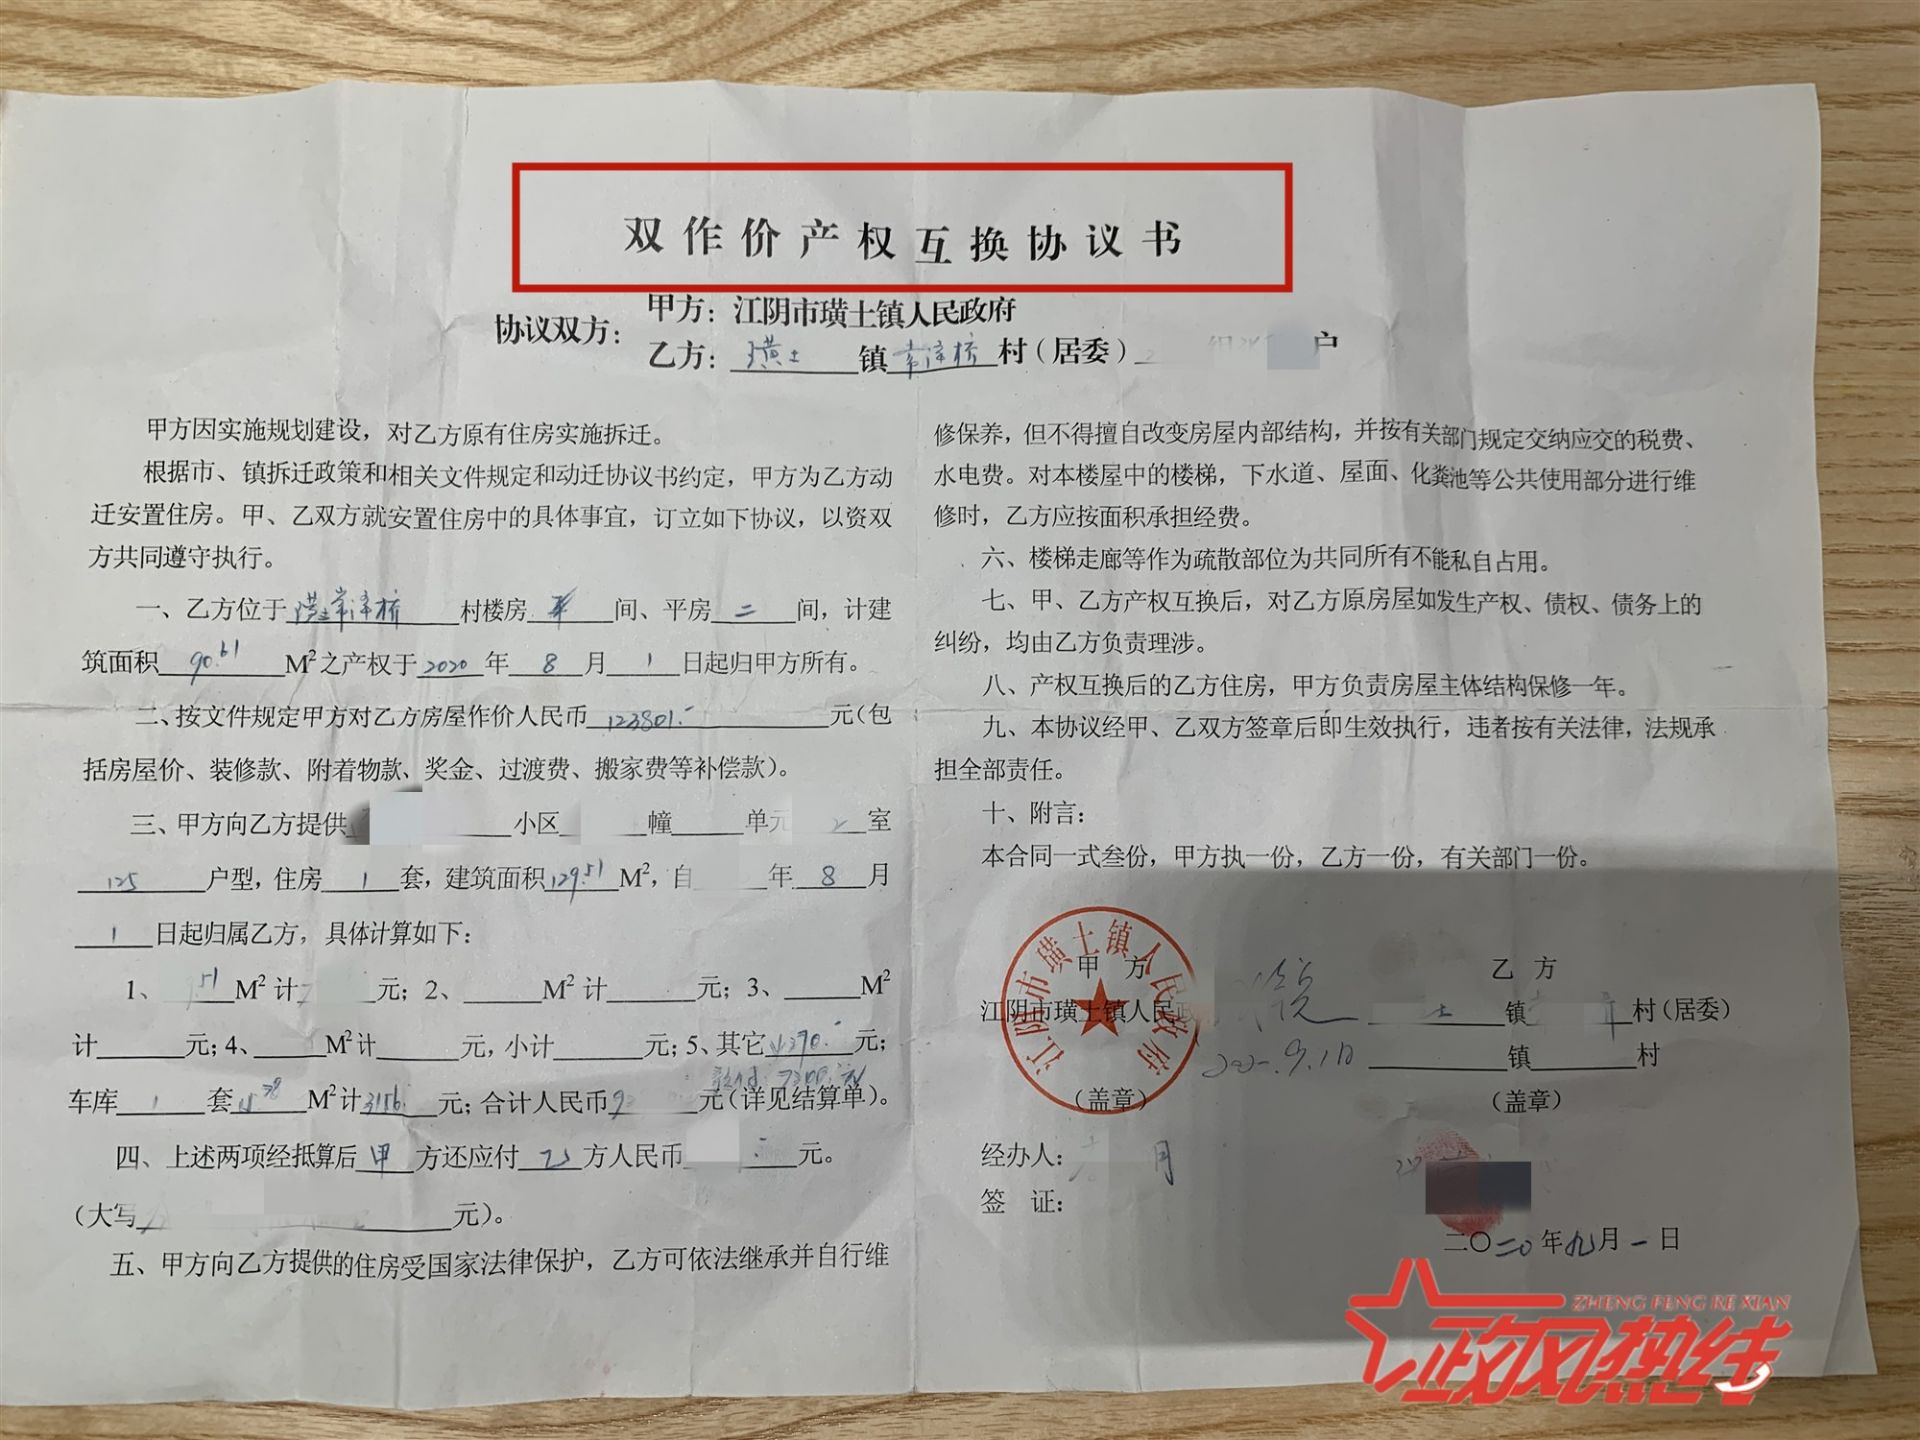 双作价产权互换协议书
协议双方：
甲方：江阴市璜土镇人民政府
乙方：璜土镇常泽桥村（居委）户
甲方因实施规划建设，对乙方原有住房实施拆迁。
根据市、镇拆迁政策和相关文件规定和动迁协议书约定，甲方为乙方动
迁安置住房。甲、乙双方就安置住房中的具体事宜，订立如下协议，以资双
方共同遵守执行。
一、乙方位于璜土常泽桥村楼房 间、平房二间，计建
筑面积90.61M²之产权于2020年8月1日起归甲方所有。
二、按文件规定甲方对乙方房屋作价人民币123801.-元（包
括房屋价、装修款、附着物款、奖金、过渡费、搬家费等补偿款）。
三、甲方向乙方提供 小区 幢 单元 室
125户型，住房1套，建筑面积129.51M²，自 年8月
1日起归属乙方，具体计算如下：
1、 M²计 元；2、 M²计 元；3、 M²
计 元；4、 M²计 元，小计 元；5、其它 元；
车库1套 M²计3156.元；合计人民币 元（详见结算单）。
四、上述两项经抵算后甲方还应付乙方人民币 元。
（大写 元）。
五、甲方向乙方提供的住房受国家法律保护，乙方可依法继承并自行维
修保养，但不得擅自改变房屋内部结构，并按有关部门规定交纳应交的税费、
水电费。对本楼屋中的楼梯，下水道、屋面、化粪池等公共使用部分进行维
修时，乙方应按面积承担经费。
六、楼梯走廊等作为疏散部位为共同所有不能私自占用。
七、甲、乙方产权互换后，对乙方原房屋如发生产权、债权、债务上的
纠纷，均由乙方负责理涉。
八、产权互换后的乙方住房，甲方负责房屋主体结构保修一年。
九、本协议经甲、乙双方签章后即生效执行，违者按有关法律，法规承
担全部责任。
十、附言：
本合同一式叁份，甲方执一份，乙方一份，有关部门一份。
甲方
江阴市璜土镇人民政
（盖章）
江阴市璜土镇人民政府
乙方
土镇 村（居委）
镇 村
（盖章）
经办人： 月
签证：
二〇二0年九月一日
ZHENG FENG RE XIAN
政风热线